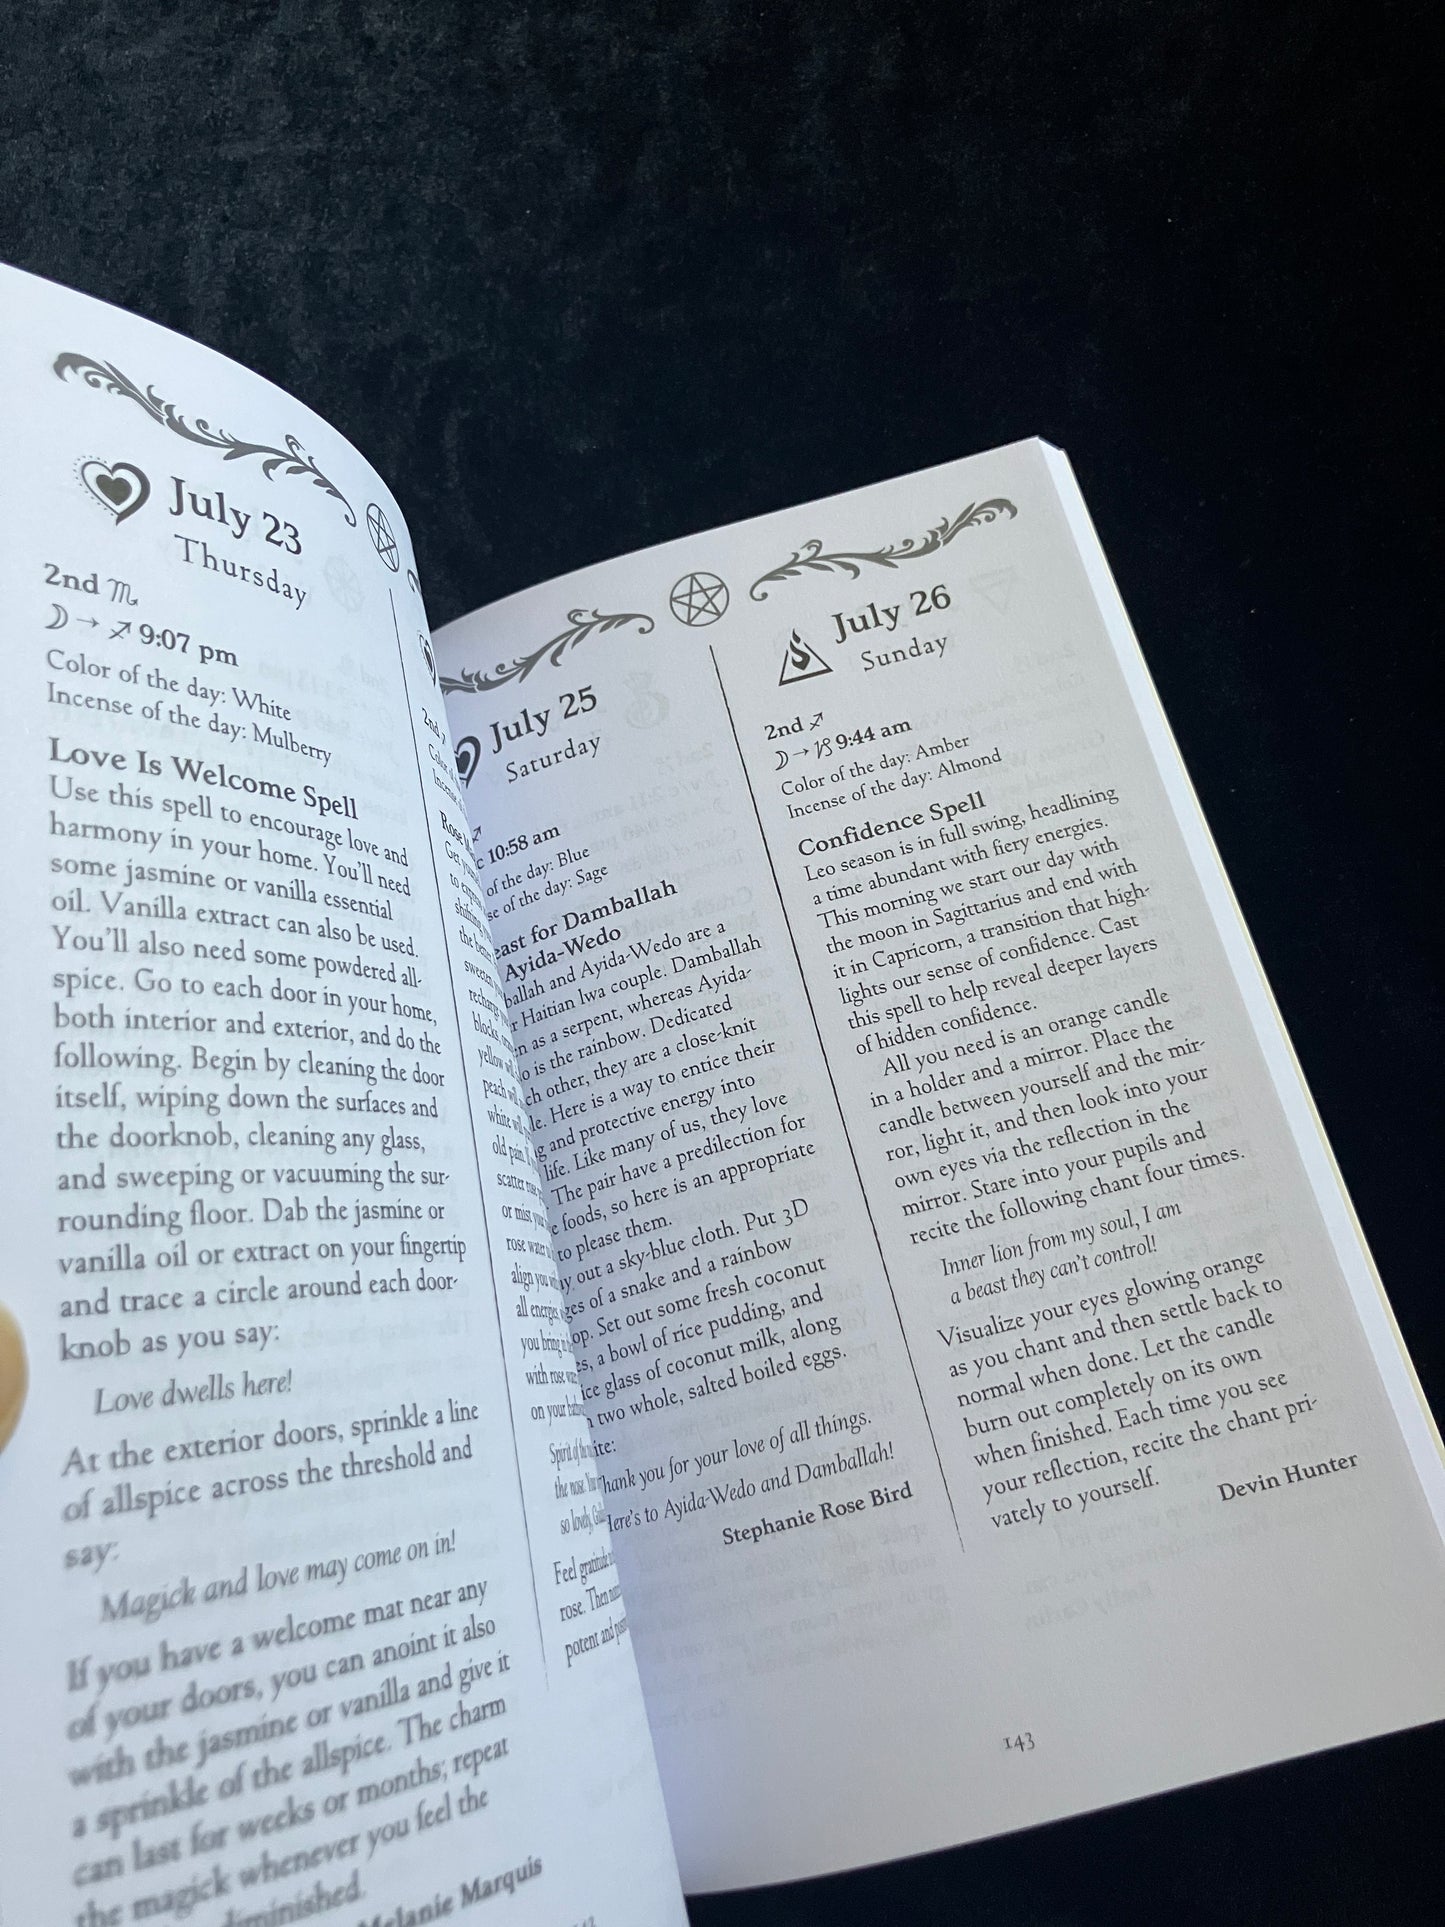 July 23
Thursday
2nd ♏
☽ → ♐ 9:07 pm
Color of the day: White
Incense of the day: Mulberry
Love Is Welcome Spell
Use this spell to encourage love and
harmony in your home. You'll need
some jasmine or vanilla essential
oil. Vanilla extract can also be used.
You'll also need some powdered all-
spice. Go to each door in your home,
both interior and exterior, and do the
following. Begin by cleaning the door
itself, wiping down the surfaces and
the doorknob, cleaning any glass,
and sweeping or vacuuming the sur-
rounding floor. Dab the jasmine or
vanilla oil or extract on your fingertip
and trace a circle around each door-
knob as you say:
Love dwells here!
At the exterior doors, sprinkle a line
of allspice across the threshold and
say:
Magick and love may come on in!
If you have a welcome mat near any
of your doors, you can anoint it also
with the jasmine or vanilla and give it
a sprinkle of the allspice. The charm
can last for weeks or months; repeat
the magick whenever you feel the
diminished.
Melanie Marquis
2nd
Color
Incense
Rose
Get
to
shifting
the
sweeten
recharg
blocks,
yellow
peach
white
old pain.
scatter rose
or mist your
rose water
align you with
all energies
you bring in
with rose
on your
Spirit of
the nose.
so lovely,
Feel gratitude
rose. Then
potent and
July 25
Saturday
♐
10:58 am
of the day: Blue
se of the day: Sage
east for Damballah
Ayida-Wedo
ballah and Ayida-Wedo are a
r Haitian lwa couple. Damballah
n as a serpent, whereas Ayida-
o is the rainbow. Dedicated
ch other, they are a close-knit
le. Here is a way to entice their
g and protective energy into
life. Like many of us, they love
The pair have a predilection for
e foods, so here is an appropriate
to please them.
ay out a sky-blue cloth. Put 3D
ges of a snake and a rainbow
op. Set out some fresh coconut
es, a bowl of rice pudding, and
ice glass of coconut milk, along
two whole, salted boiled eggs.
ite:
Thank you for your love of all things.
Here's to Ayida-Wedo and Damballah!
Stephanie Rose Bird
July 26
Sunday
2nd ♐
☽ → ♑ 9:44 am
Color of the day: Amber
Incense of the day: Almond
Confidence Spell
Leo season is in full swing, headlining
a time abundant with fiery energies.
This morning we start our day with
the moon in Sagittarius and end with
it in Capricorn, a transition that high-
lights our sense of confidence. Cast
this spell to help reveal deeper layers
of hidden confidence.
All you need is an orange candle
in a holder and a mirror. Place the
candle between yourself and the mir-
ror, light it, and then look into your
own eyes via the reflection in the
mirror. Stare into your pupils and
recite the following chant four times.
Inner lion from my soul, I am
a beast they can't control!
Visualize your eyes glowing orange
as you chant and then settle back to
normal when done. Let the candle
burn out completely on its own
when finished. Each time you see
your reflection, recite the chant pri-
vately to yourself.
Devin Hunter
143